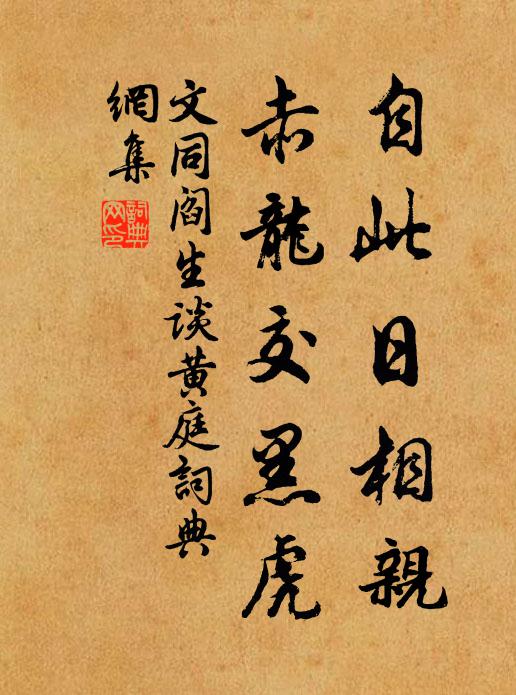 自此日相親
赤龍交黑虎
文同閻生談黃庭詞典
網集
詞典网印